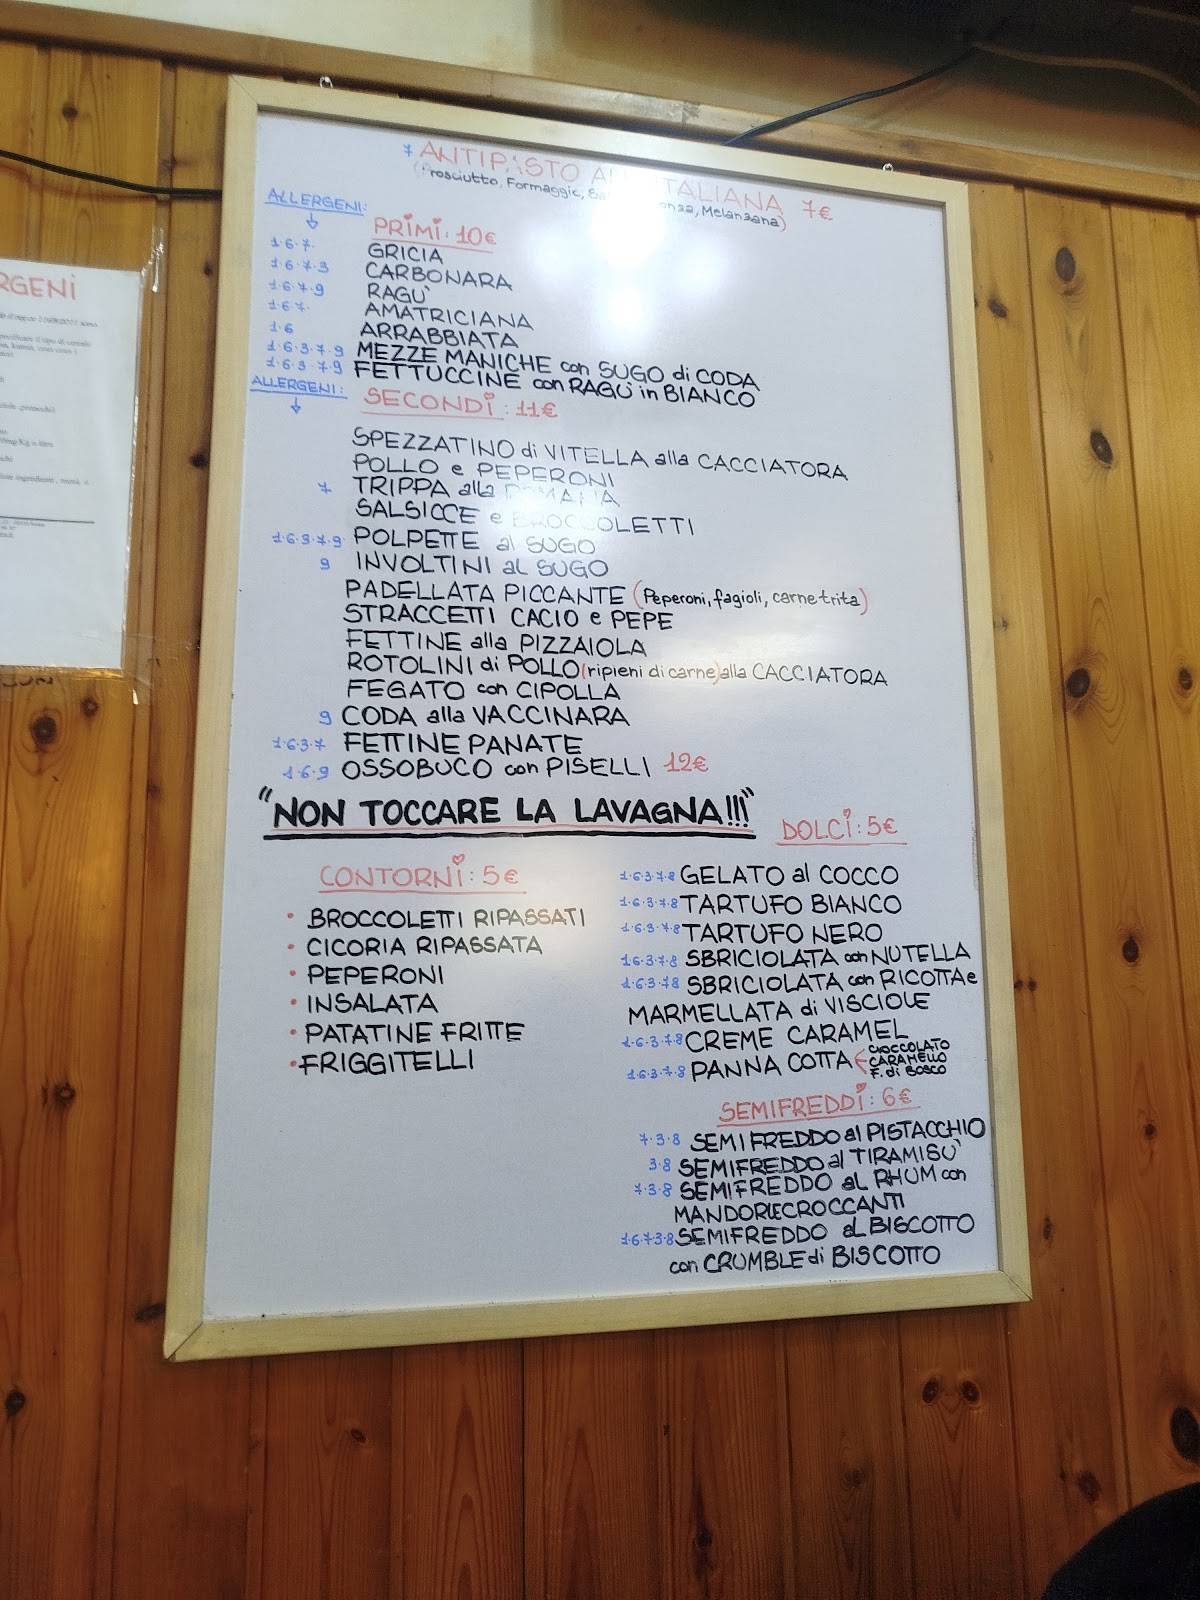 7 ANTIPASTO ITALIANA 7€
(Prosciutto, Formaggio, Melanzana)
ALLERGENI:
PRIMI: 10€
1·6·7· GRICIA
1·6·7·3 CARBONARA
1·6·7·9 RAGÙ
1·6·7· AMATRICIANA
1·6 ARRABBIATA
1·6·3·7·9 MEZZE MANICHE con SUGO di CODA
1·6·3·7·9 FETTUCCINE con RAGÙ in BIANCO
ALLERGENI:
SECONDI: 11€
SPEZZATINO di VITELLA alla CACCIATORA
POLLO e PEPERONI
7 TRIPPA alla ROMANA
SALSICCE e BROCCOLETTI
1·6·3·7·9 POLPETTE al SUGO
9 INVOLTINI al SUGO
PADELLATA PICCANTE (Peperoni, fagioli, carne trita)
STRACCETTI CACIO e PEPE
FETTINE alla PIZZAIOLA
ROTOLINI di POLLO (ripieni di carne) alla CACCIATORA
FEGATO con CIPOLLA
9 CODA alla VACCINARA
1·6·3·7 FETTINE PANATE
1·6·9 OSSOBUCO con PISELLI 12€
"NON TOCCARE LA LAVAGNA!!!"
CONTORNI: 5€
• BROCCOLETTI RIPASSATI
• CICORIA RIPASSATA
• PEPERONI
• INSALATA
• PATATINE FRITTE
• FRIGGITELLI
DOLCI: 5€
1·6·3·7·8 GELATO al COCCO
1·6·3·7·8 TARTUFO BIANCO
1·6·3·7·8 TARTUFO NERO
1·6·3·7·8 SBRICIOLATA con NUTELLA
1·6·3·7·8 SBRICIOLATA con RICOTTA e
MARMELLATA di VISCIOLE
1·6·3·7·8 CREME CARAMEL
1·6·3·7·8 PANNA COTTA CIOCCOLATO
CARAMELLO
F. di BOSCO
SEMIFREDDI: 6€
7·3·8 SEMIFREDDO al PISTACCHIO
3·8 SEMIFREDDO al TIRAMISÙ
7·3·8 SEMIFREDDO al RHUM con
MANDORLE CROCCANTI
1·6·7·3·8 SEMIFREDDO al BISCOTTO
con CRUMBLE di BISCOTTO
RGENI